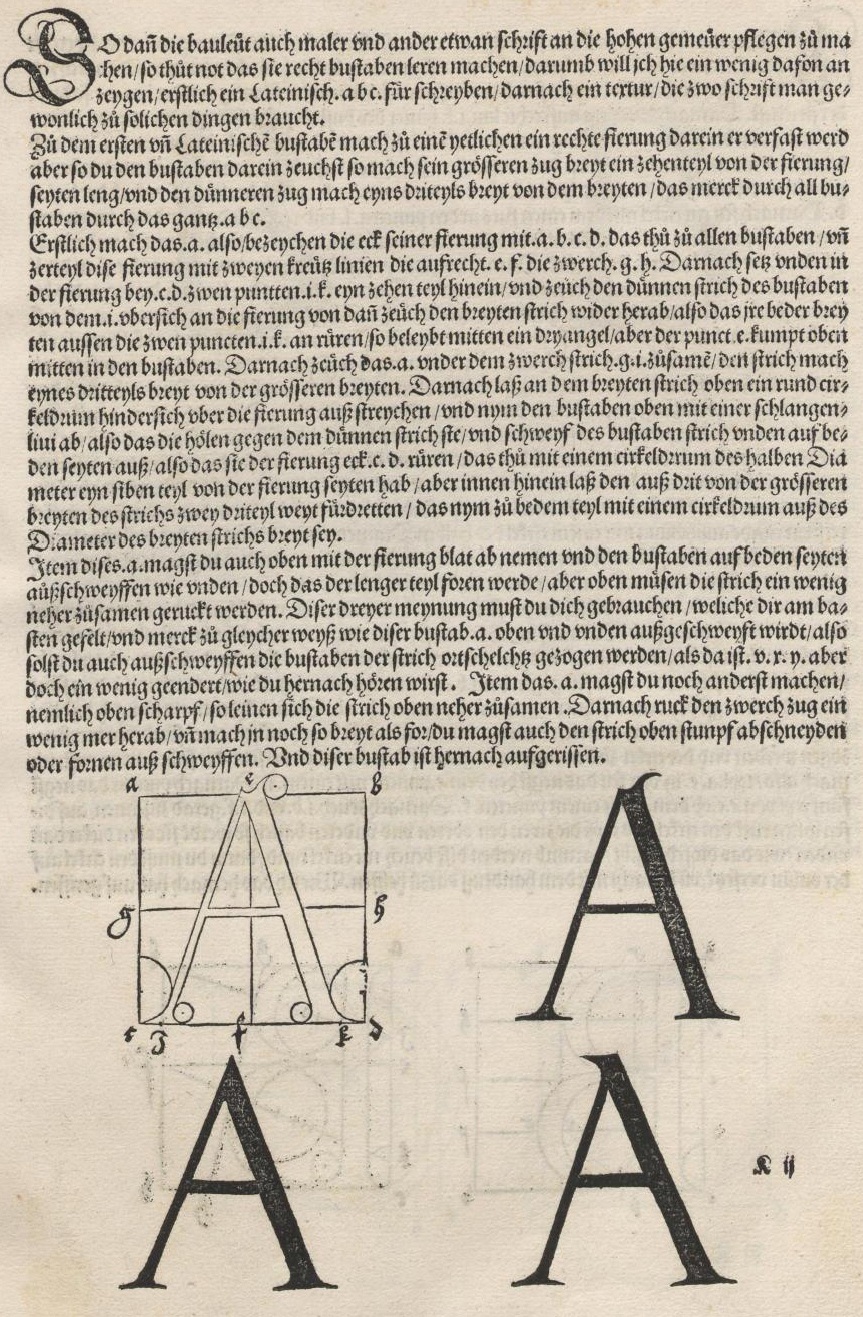 SO dañ die bauleüt auch maler vnd ander etwan schrift an die hohen gemeüer pflegen zů ma
chen/so thůt not das sie recht bustaben leren machen/darumb will jch hie ein wenig dafon an
zeygen/erstlich ein Lateinisch. a b c. für schreyben/darnach ein textur/die zwo schrift man ge⸗
wonlich zů solichen dingen braucht.
Zů dem ersten vñ Lateinischẽ bustabẽ mach zů einẽ yetlichen ein rechte fierung darein er verfast werd
aber so du den bustaben darein zeuchst so mach sein grösseren zug breyt ein zehenteyl von der fierung/
seyten leng/vnd den dünneren zug mach eyns driteyls breyt von dem breyten/das merck durch all bu⸗
staben durch das gantz.a b c.
Erstlich mach das.a. also/bezeychen die eck seiner fierung mit.a. b. c. d. das thů zů allen bustaben/vñ
zerteyl dise fierung mit zweyen kreütz linien die aufrecht. e. f. die zwerch. g. h. Darnach setz vnden in
der fierung bey.c.d.zwen puntten.i.k. eyn zehen teyl hinein/vnd zeüch den dünnen strich des bustaben
von dem.i.vbersich an die fierung von dañ zeüch den breyten strich wider herab/also das jre beder brey
ten aussen die zwen puncten.i.k. an rüren/so beleybt mitten ein dryangel/aber der punct.e.kumpt oben
mitten in den bustaben. Darnach zeüch das.a. vnder dem zwerch strich.g.i.züsamẽ/den strich mach
eynes dritteyls breyt von der grösseren breyten. Darnach laß an dem breyten strich oben ein rund cir⸗
keldrum hindersich vber die fierung auß streychen/vnd nym den bustaben oben mit einer schlangen⸗
lini ab/also das die hölen gegen dem dünnen strich ste/vnd schweyf des bustaben strich vnden auf be⸗
den seyten auß/also das sie der fierung eck.c. d. rüren/das thů mit einem cirkeldrum des halben Dia
meter eyn siben teyl von der fierung seyten hab/aber innen hinein laß den auß drit von der grösseren
breyten des strichs zwey driteyl weyt fürdretten/das nym zů bedem teyl mit einem cirkeldrum auß des
Diameter des breyten strichs breyt sey.
Item dises.a.magst du auch oben mit der fierung blat ab nemen vnd den bustaben auf beden seyten
außschweyffen wie vnden/doch das der lenger teyl foren werde/aber oben müsen die strich ein wenig
neher züsamen geruckt werden. Diser dreyer meynung must du dich gebrauchen/weliche dir am ba⸗
sten gefelt/vnd merck zů gleycher weyß wie diser bustab.a. oben vnd vnden außgeschweyft wirdt/also
solst du auch außschweyffen die bustaben der strich ortschelchtz gezogen werden/als da ist. v. x. y. aber
doch ein wenig geendert/wie du hernach hören wirst. Item das. a. magst du noch anderst machen/
nemlich oben scharpf/so leinen sich die strich oben neher züsamen. Darnach ruck den zwerch zug ein
wenig mer herab/vñ mach in noch so breyt als for/du magst auch den strich oben stunpf abschneyden
oder fornen auß schweyffen. Vnd diser bustab ist hernach aufgerissen.
a e b
A
g h
c i f k d
A A
K ij